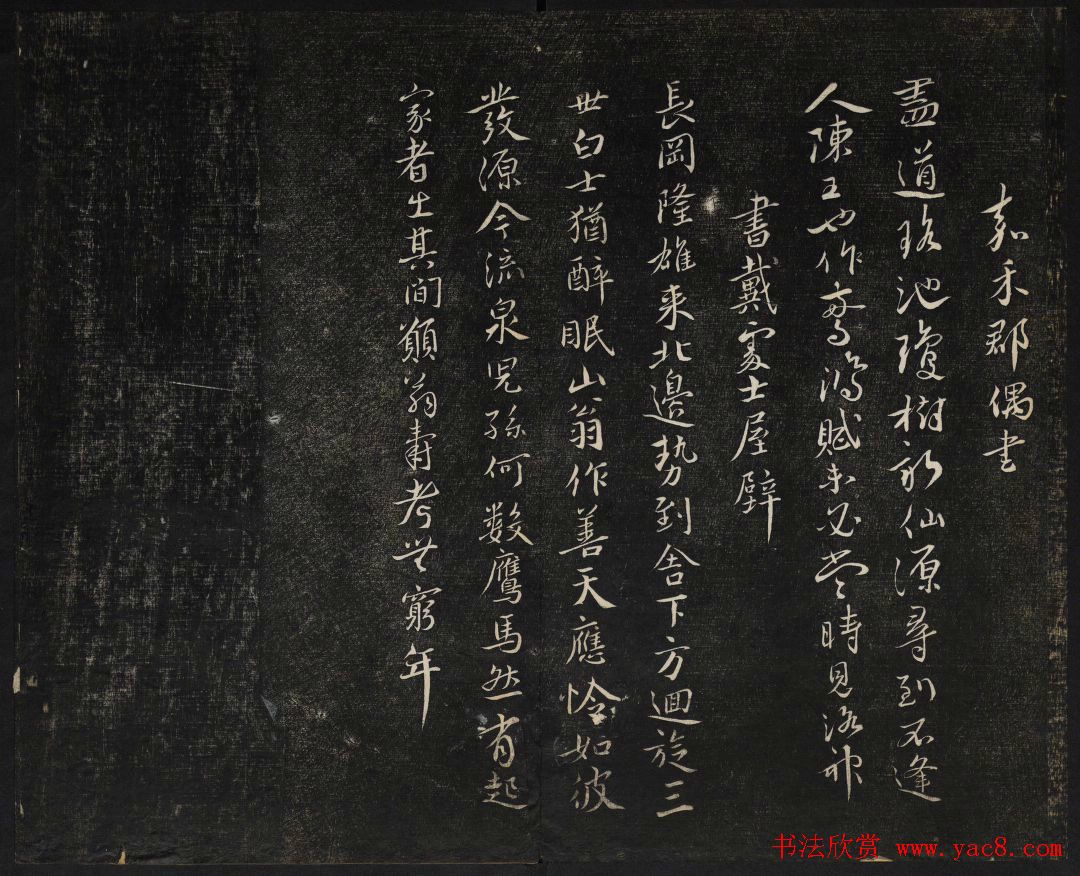 嘉禾郡偶書
盡道瑤池瓊樹新仙源尋到不逢
人陳王也作驚鴻賦未必當時見洛神
書戴處士屋壁
長岡隆雄來北邊勢到舍下方迴旋三
世白士猶醉眠山翁作善天應憐如彼
發源今流泉兒孫何數鷹馬然有起
家者出其間願翁壽考無窮年
书法欣赏 www.yac8.com